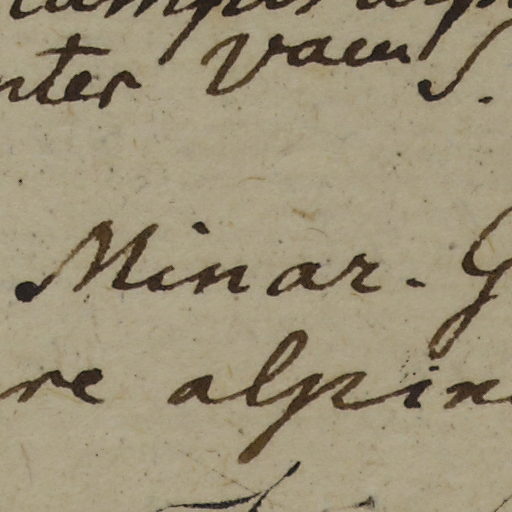 nter Vacu S.
Minar. G
re alpin